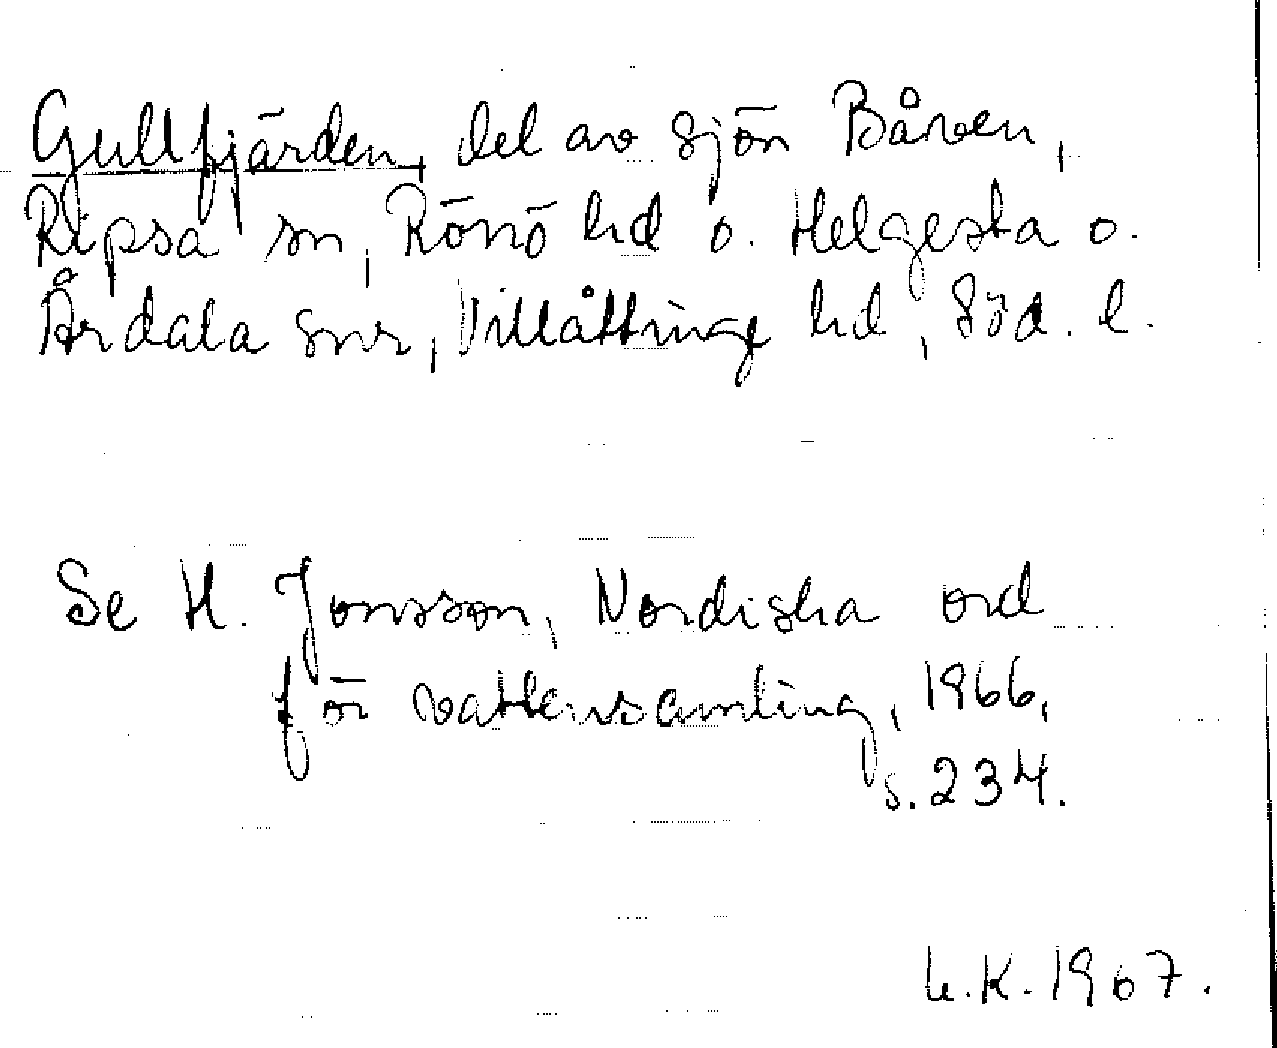 Gullfjärden, del av sjön Båven,
Ripsa sn, Rönö hd o. Helgesta o.
Årdala snr, Villåttinge hd, Söd. l.
Se H. Jonsson, Nordiska ord
för vattensamling, 1966,
s. 234.
h.K. 1967.